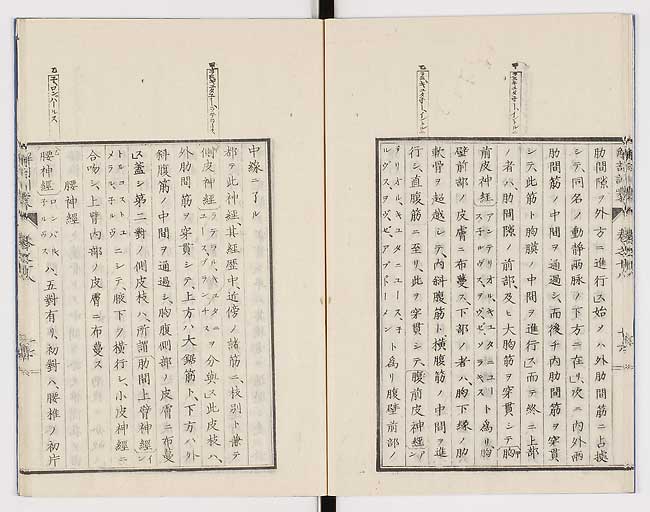 肋間隙ヲ外方ニ進行ス始メハ外肋間筋ニ占據
シテ同名ノ動靜兩脉ノ下方ニ在リ次ニ内外兩
肋間筋ノ中間ヲ通過シ而後チ内肋間筋ヲ穿貫
シテ此筋ト胸膜ノ中間ヲ進行ス而テ終ニ上部
ノ者ハ肋間隙ノ前部及ヒ大胸筋ヲ穿貫シテ胸
前皮神經
ト爲リ胸
壁前部ノ皮膚ニ布蔓ス下部ノ者ハ胸下緣ノ肋
軟骨ヲ超越シテ内斜腹筋ト横腹筋ノ中間ヲ進
行シ直腹筋ニ至リ此ヲ穿貫シテ腹前皮神經
テリオル、キュタニユース、子
ルヴス、ヲヴ、ゼ、アブドーメン
ト爲リ腹壁前部ノ
中線ニ了ル
都テ此神經其經歴中、近傍ノ諸筋ニ枝別ト兼テ
側皮神經
ヲ分與ス此皮枝ハ
外肋間筋ヲ穿貫シテ上方ハ大鋸筋ト下方ハ外
斜腹筋ノ中間ヲ通過シ胸腹側部ノ皮膚ニ布蔓
ス蓋シ第二對ノ側皮枝ハ所謂肋間上臂神經
ニシテ腋下ヲ横行シ小皮神經ニ
合吻シ上臂内部ノ皮膚ニ布蔓ス
腰神經
腰神經
ハ五對有リ初對ハ腰椎ノ初片